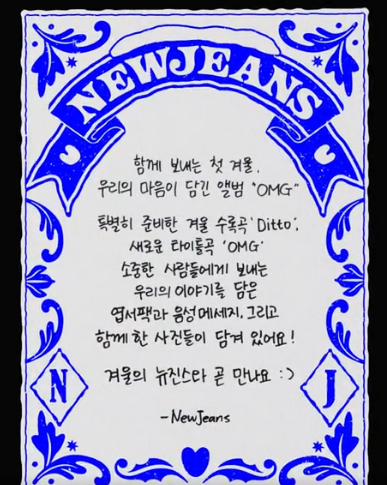 NEWJEANS
함께 보내는 첫 겨울,
우리의 마음이 담긴 앨범 "OMG"
특별히 준비한 겨울 수록곡 'Ditto',
새로운 타이틀곡 'OMG'
소중한 사람들에게 보내는
우리의 이야기를 담은
엽서팩과 음성메세지, 그리고
함께한 사진들이 담겨 있어요!
겨울의 뉴진스타 곧 만나요 :)
N J
-NewJeans